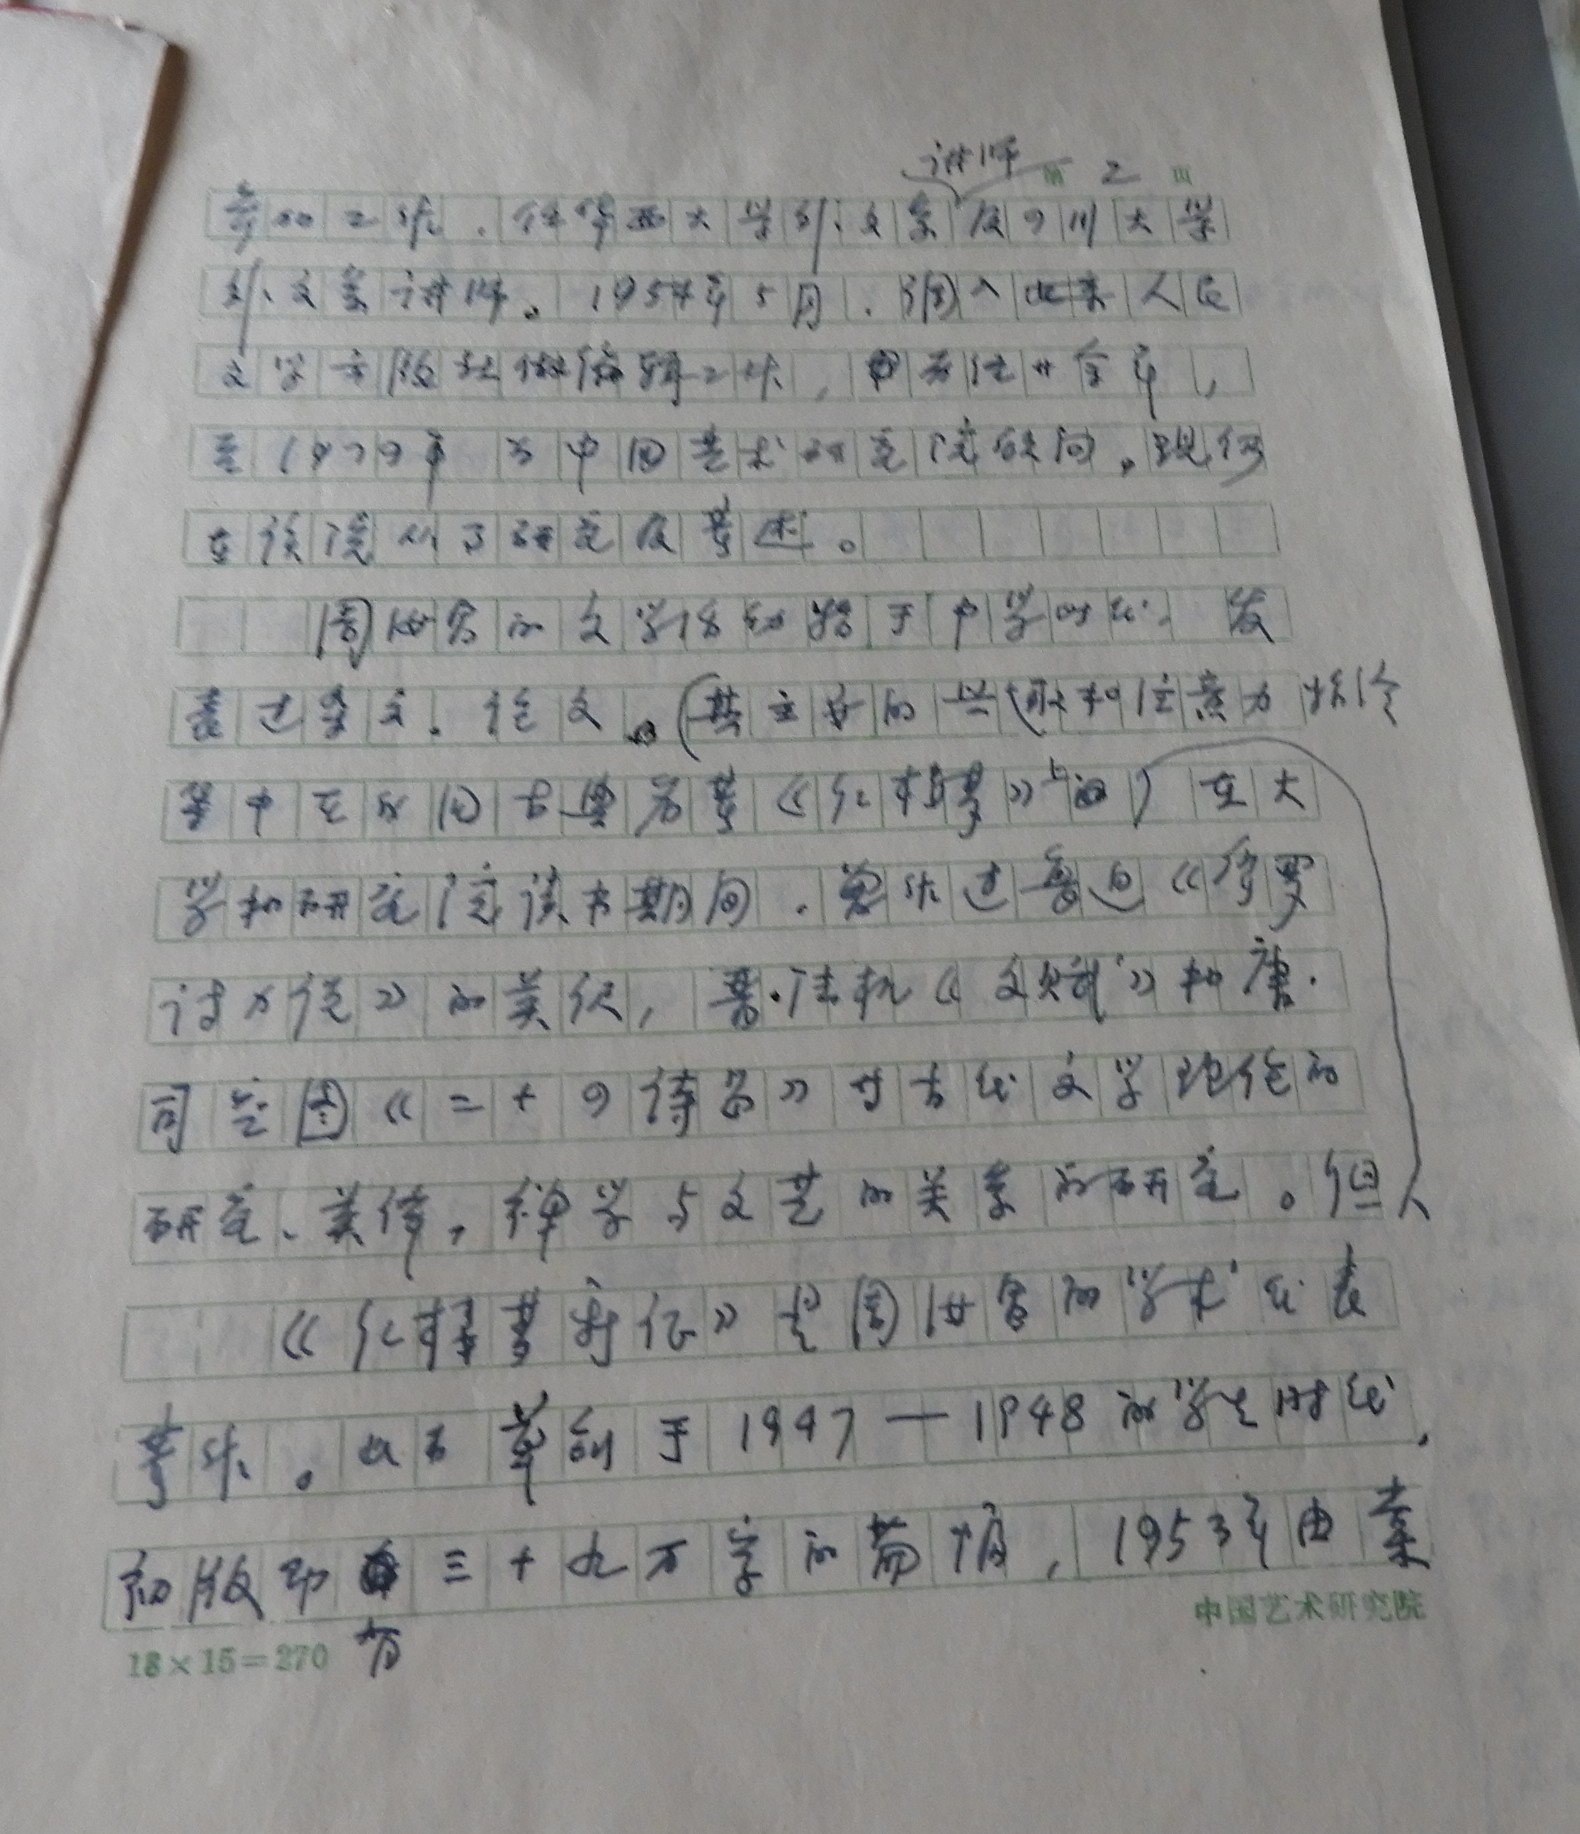 讲师 第 2 页
工作.任华西大学外文系及四川大学
外文系讲师。1954年5月.调入北京人民
文学出版社做编辑工作,
至1979年为中国艺术研究院顾问。现仍
在该院从事研究及著述。
周汝昌的文学活动始于中学时代.发
表过杂文.论文。(其主要的兴趣和注意力始终
集中在我国古典名著《红楼梦》上)在大
学和研究院读书期间.曾作过鲁迅《摩罗
诗力说》的英译,晋·陆机《文赋》和唐·
司空图《二十四诗品》等古代文学理论的
研究、英译,禅学与文艺的关系的研究。但
《红楼梦新证》是周汝昌的学术代表
著作。此书草创于1947—1948的学生时代,
初版即有三十九万字的篇幅,1953年由棠
18×15=270
中国艺术研究院